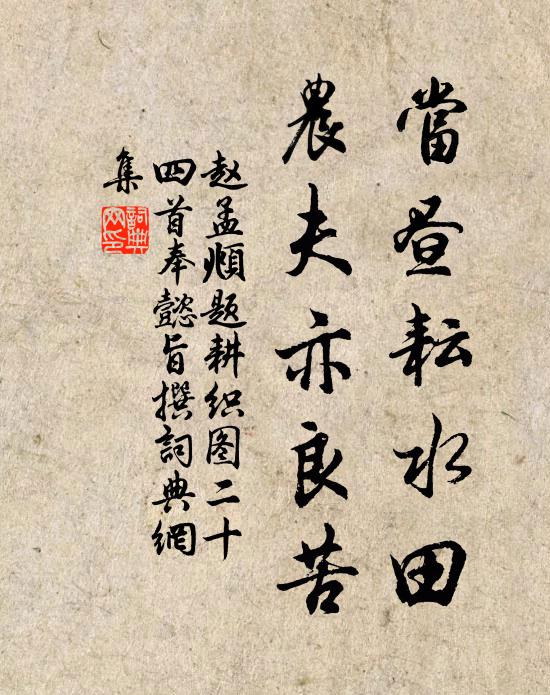 當昼耘水田
農夫亦良苦
赵孟頫题耕织图二十
四首奉懿旨撰詞典網
集
詞典
网印